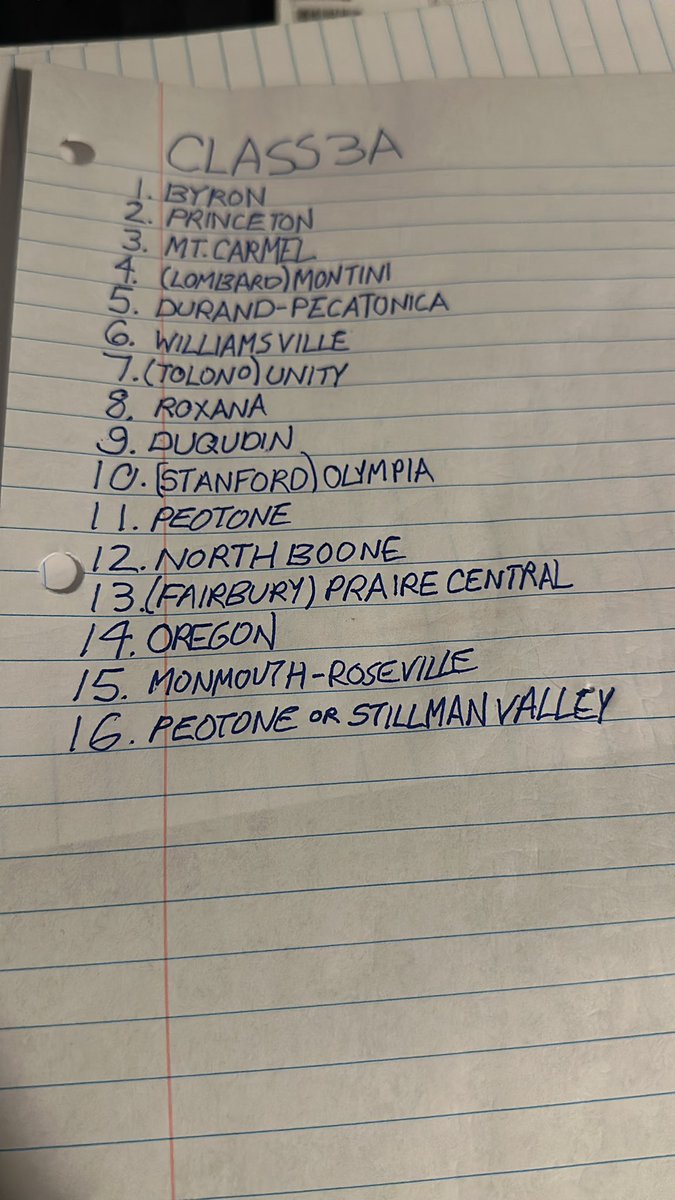 CLASS 3A
1. BYRON
2. PRINCETON
3. MT. CARMEL
4. (LOMBARD) MONTINI
5. DURAND-PECATONICA
6. WILLIAMSVILLE
7. (TOLONO) UNITY
8. ROXANA
9. DUQUDIN
10. (STANFORD) OLYMPIA
11. PEOTONE
12. NORTH BOONE
13. (FAIRBURY) PRAIRE CENTRAL
14. OREGON
15. MONMOUTH-ROSEVILLE
16. PEOTONE OR STILLMAN VALLEY